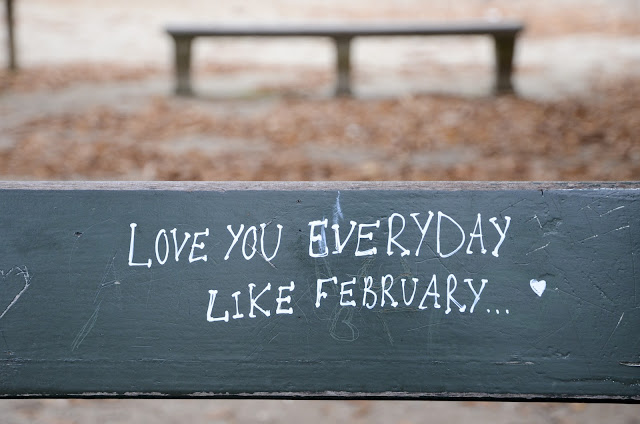 LOVE YOU EVERYDAY
LIKE FEBRUARY...